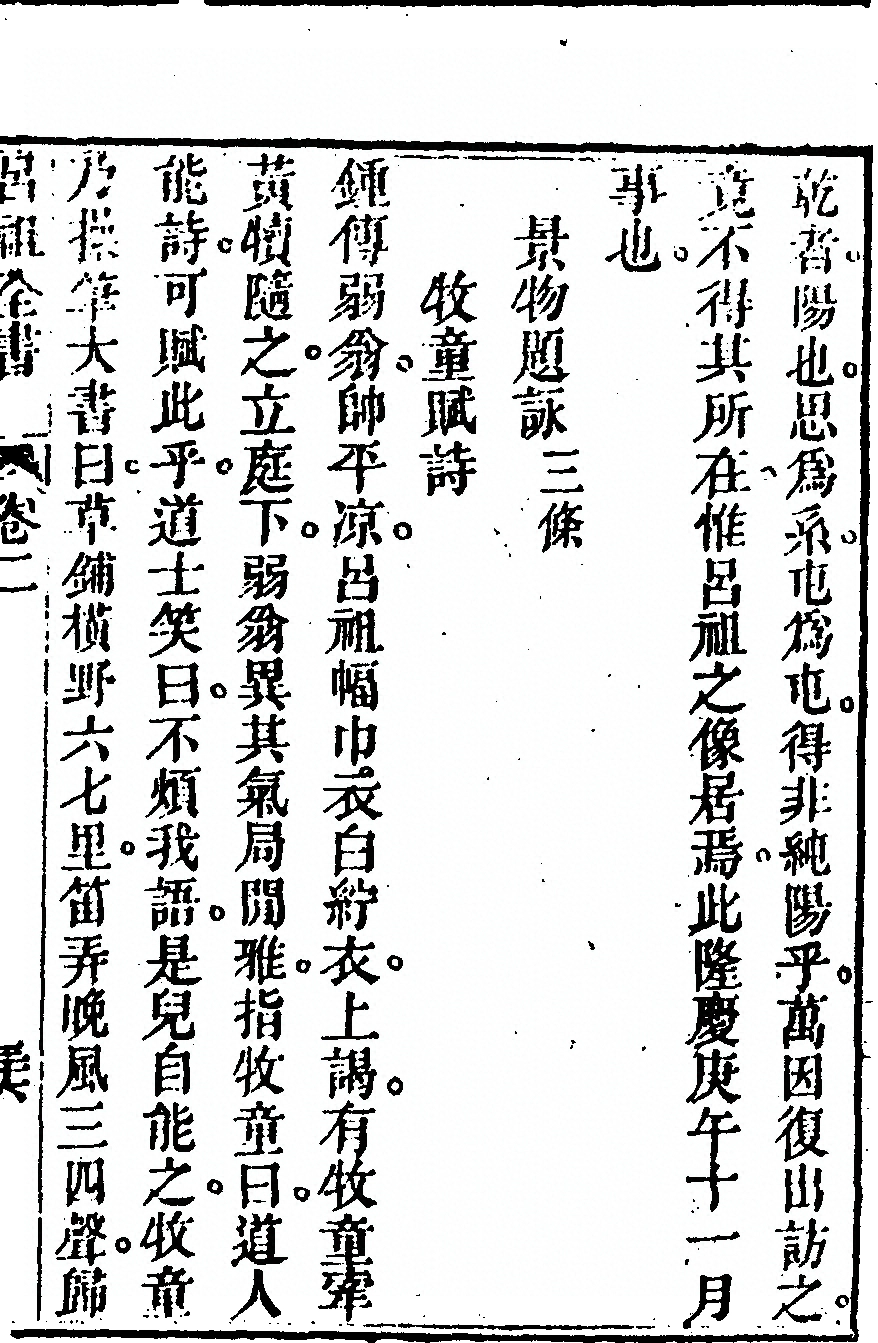 乾者。陽也。思爲系。屯爲屯。得非純陽乎。萬因復出訪之。
竟不得其所在。惟呂祖之像居焉。此隆慶庚午十一月
事也。
景物題詠 三條
牧童賦詩
鍾傅弱翁。帥平凉。呂祖幅巾衣白紵衣。上謁。有牧童牽
黃犢隨之。立庭下。弱翁異其氣局閒雅。指牧童曰。道人
能詩。可賦此乎。道士笑曰。不煩我語。是兒自能之。牧童
乃操筆大書曰。草鋪橫野六七里。笛弄晚風三四聲。歸
呂祖全書 卷二